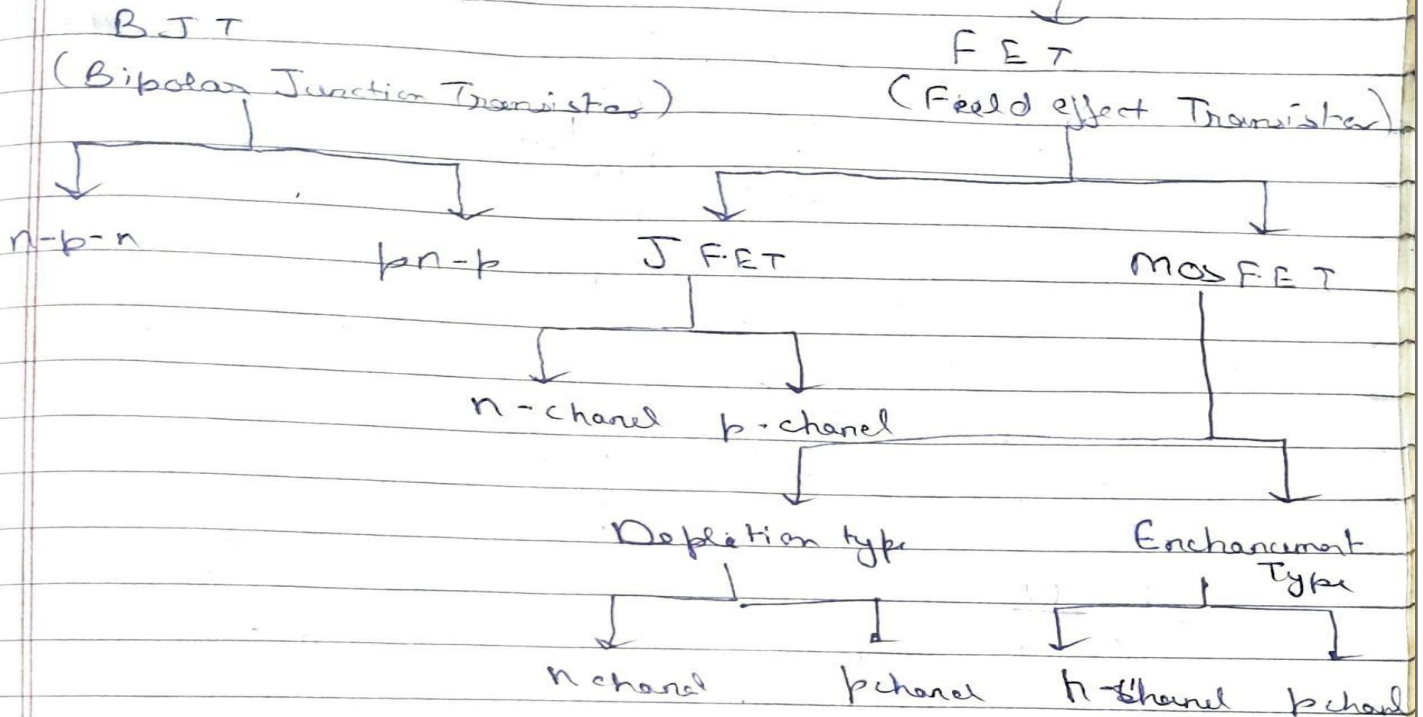 BJT
FET
(Bipolar Junction Transistor)
(Feild effect Transistor)
n-p-n
pn-p
JFET
MosFET
n-chanel
p-chanel
Depletion type
Enchancement
Type
n chanel
p chanel
n-chanel
p chanel